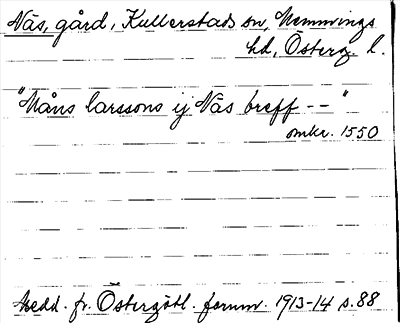 Näs, gård, Kullerstads sn, Memmings
hd, Österg. l.
"Måns larssons ij Näs breff --"
omkr. 1550
Medd. fr. Östergötl. fornm. 1913-14 s. 88